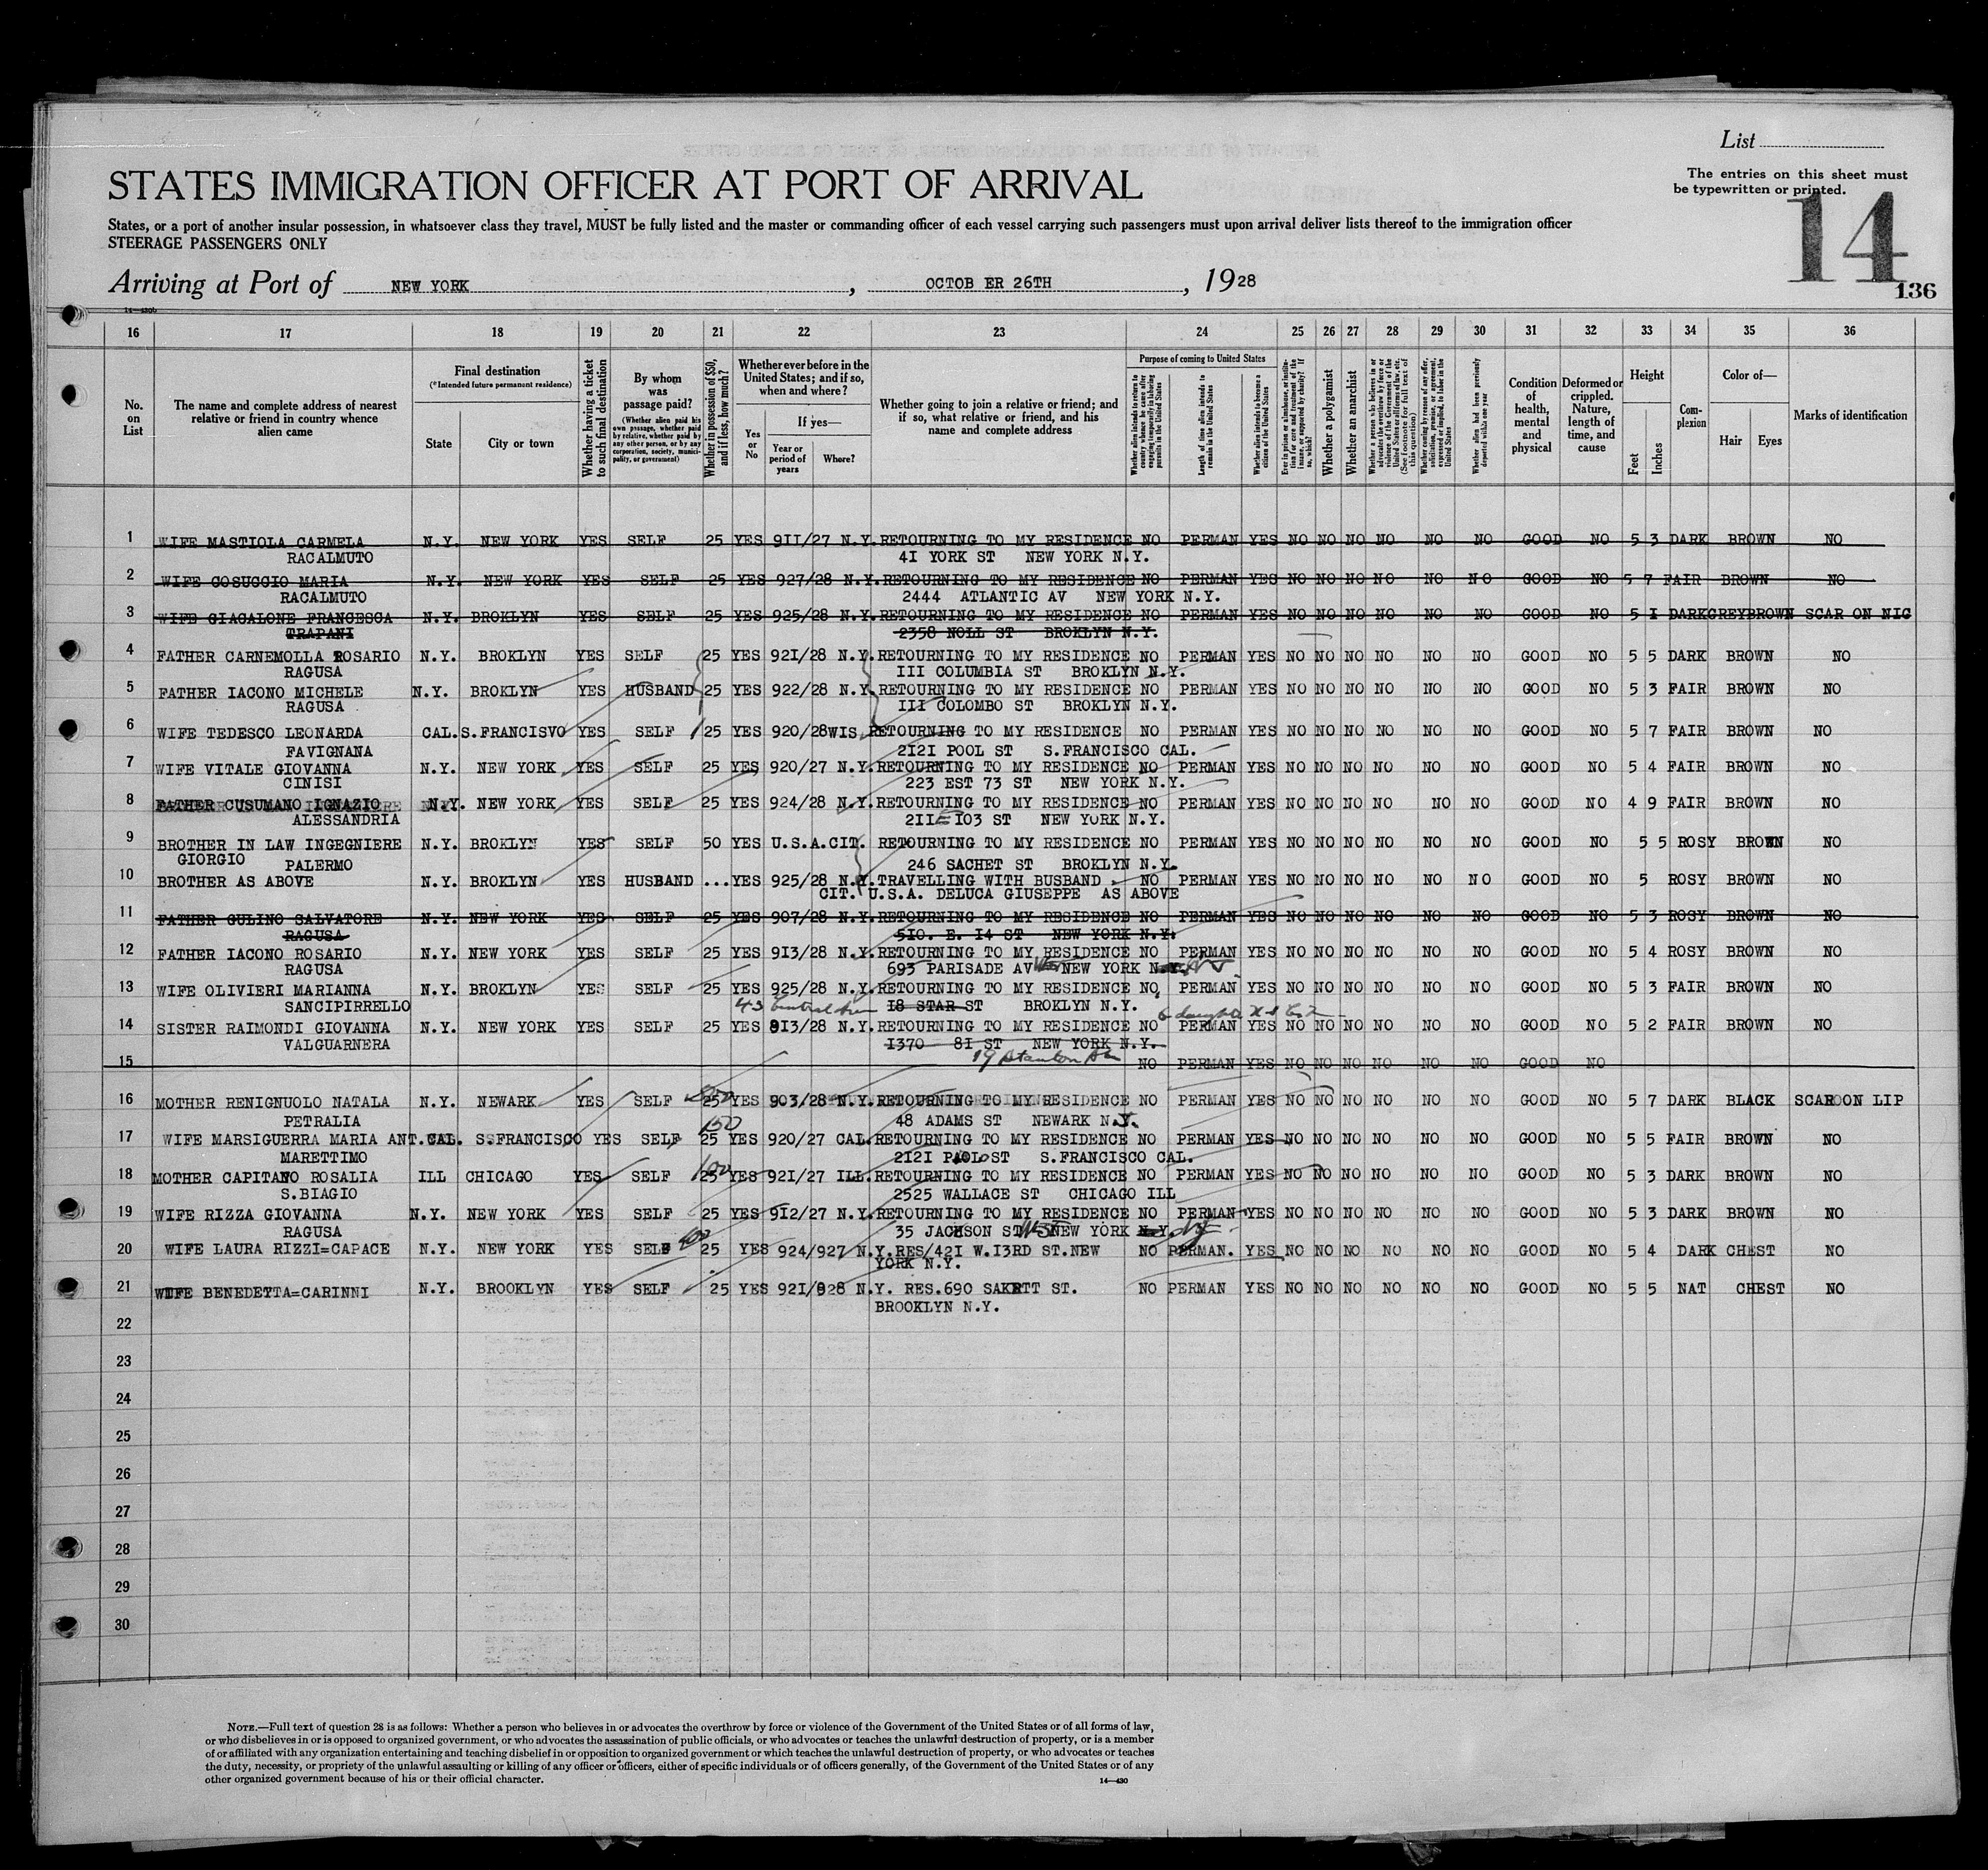 List
The entries on this sheet must
be typewritten or printed.
STATES IMMIGRATION OFFICER AT PORT OF ARRIVAL
14
136
States, or a port of another insular possession, in whatsoever class they travel, MUST be fully listed and the master or commanding officer of each vessel carrying such passengers must upon arrival deliver lists thereof to the immigration officer
STEERAGE PASSENGERS ONLY
Arriving at Port of NEW YORK, OCTOB ER 26TH, 1928
16 17 18 19 20 21 22 23 24 25 26 27 28 29 30 31 32 33 34 35 36
No. on List
The name and complete address of nearest relative or friend in country whence alien came
Final destination
(*Intended future permanent residence)
State
City or town
Whether having a ticket to such final destination
By whom was passage paid?
(Whether alien paid his own passage, whether paid by relative, whether paid by any other person, or by any corporation, society, municipality, or government)
Whether in possession of $50, and if less, how much?
Whether ever before in the United States; and if so, when and where?
Yes or No
If yes—
Year or period of years
Where?
Whether going to join a relative or friend; and if so, what relative or friend, and his name and complete address
Purpose of coming to United States
Length of time alien intends to remain in the United States
Whether alien intends to become a citizen of the United States
Whether a polygamist
Whether an anarchist
Whether alien had been previously deported within one year
Condition of health, mental and physical
Deformed or crippled. Nature, length of time, and cause
Height
Feet
Inches
Complexion
Color of—
Hair
Eyes
Marks of identification
1 WIFE MASTIOLA CARMELA N.Y. NEW YORK YES SELF 25 YES 9II/27 N.Y. RETOURNING TO MY RESIDENCE NO PERMAN YES NO NO NO NO NO NO GOOD NO 5 3 DARK BROWN NO
RACALMUTO 4I YORK ST NEW YORK N.Y.
2 WIFE COSUCCIO MARIA N.Y. NEW YORK YES SELF 25 YES 927/28 N.Y. RETOURNING TO MY RESIDENCE NO PERMAN YES NO NO NO NO NO NO GOOD NO 5 7 FAIR BROWN NO
RACALMUTO 2444 ATLANTIC AV NEW YORK N.Y.
3 WIFE GIACALONE FRANCESCA N.Y. BROKLYN YES SELF 25 YES 925/28 N.Y. RETOURNING TO MY RESIDENCE NO PERMAN YES NO NO NO NO NO NO GOOD NO 5 I DARK GREY BROWN SCAR ON NIC
TRAPANI 2358 NOLL ST BROKLYN N.Y.
4 FATHER CARNEMOLLA ROSARIO N.Y. BROKLYN YES SELF 25 YES 92I/28 N.Y. RETOURNING TO MY RESIDENCE NO PERMAN YES NO NO NO NO NO NO GOOD NO 5 5 DARK BROWN NO
RAGUSA III COLUMBIA ST BROKLYN N.Y.
5 FATHER IACONO MICHELE N.Y. BROKLYN YES HUSBAND 25 YES 922/28 N.Y. RETOURNING TO MY RESIDENCE NO PERMAN YES NO NO NO NO NO NO GOOD NO 5 3 FAIR BROWN NO
RAGUSA III COLOMBO ST BROKLYN N.Y.
6 WIFE TEDESCO LEONARDA CAL. S.FRANCISVO YES SELF 25 YES 920/28 WIS. RETOURNING TO MY RESIDENCE NO PERMAN YES NO NO NO NO NO NO GOOD NO 5 7 FAIR BROWN NO
FAVIGNANA 2I2I POOL ST S.FRANCISCO CAL.
7 WIFE VITALE GIOVANNA N.Y. NEW YORK YES SELF 25 YES 920/27 N.Y. RETOURNING TO MY RESIDENCE NO PERMAN YES NO NO NO NO NO NO GOOD NO 5 4 FAIR BROWN NO
CINISI 223 EST 73 ST NEW YORK N.Y.
8 FATHER CUSUMANO IGNAZIO N.Y. NEW YORK YES SELF 25 YES 924/28 N.Y. RETOURNING TO MY RESIDENCE NO PERMAN YES NO NO NO NO NO NO GOOD NO 4 9 FAIR BROWN NO
ALESSANDRIA 2II E I03 ST NEW YORK N.Y.
9 BROTHER IN LAW INGEGNIERE N.Y. BROKLYN YES SELF 50 YES U.S.A.CIT. RETOURNING TO MY RESIDENCE NO PERMAN YES NO NO NO NO NO NO GOOD NO 5 5 ROSY BROWN NO
GIORGIO PALERMO 246 SACHET ST BROKLYN N.Y.
10 BROTHER AS ABOVE N.Y. BROKLYN YES HUSBAND ... YES 925/28 N.Y. TRAVELLING WITH BUSBAND NO PERMAN YES NO NO NO NO NO NO GOOD NO 5 ROSY BROWN NO
CIT. U.S.A. DELUCA GIUSEPPE AS ABOVE
11 FATHER GULINO SALVATORE N.Y. NEW YORK YES SELF 25 YES 907/28 N.Y. RETOURNING TO MY RESIDENCE NO PERMAN YES NO NO NO NO NO NO GOOD NO 5 3 ROSY BROWN NO
RAGUSA 5I0. E. I4 ST NEW YORK N.Y.
12 FATHER IACONO ROSARIO N.Y. NEW YORK YES SELF 25 YES 9I3/28 N.Y. RETOURNING TO MY RESIDENCE NO PERMAN YES NO NO NO NO NO NO GOOD NO 5 4 ROSY BROWN NO
RAGUSA 693 PARISADE AV NEW YORK
13 WIFE OLIVIERI MARIANNA N.Y. BROKLYN YES SELF 25 YES 925/28 N.Y. RETOURNING TO MY RESIDENCE NO PERMAN YES NO NO NO NO NO NO GOOD NO 5 3 FAIR BROWN NO
SANCIPIRRELLO 43 Central Ave I8 STAR ST BROKLYN N.Y.
14 SISTER RAIMONDI GIOVANNA N.Y. NEW YORK YES SELF 25 YES 9I3/28 N.Y. RETOURNING TO MY RESIDENCE NO PERMAN YES NO NO NO NO NO NO GOOD NO 5 2 FAIR BROWN NO
VALGUARNERA I370 8I ST NEW YORK N.Y.
19 Stanton
15 NO PERMAN YES NO NO NO NO NO NO GOOD NO
16 MOTHER RENIGNUOLO NATALA N.Y. NEWARK YES SELF 25 YES 903/28 N.Y. RETOURNING TO MY RESIDENCE NO PERMAN YES NO NO NO NO NO NO GOOD NO 5 7 DARK BLACK SCAR ON LIP
PETRALIA 150 48 ADAMS ST NEWARK N.J.
17 WIFE MARSIGUERRA MARIA ANT. CAL. S.FRANCISCO YES SELF 25 YES 920/27 CAL. RETOURNING TO MY RESIDENCE NO PERMAN YES NO NO NO NO NO NO GOOD NO 5 5 FAIR BROWN NO
MARETTIMO 100 2I2I ST S.FRANCISCO CAL.
18 MOTHER CAPITANO ROSALIA ILL CHICAGO YES SELF 25 YES 92I/27 ILL. RETOURNING TO MY RESIDENCE NO PERMAN YES NO NO NO NO NO NO GOOD NO 5 3 DARK BROWN NO
S.BIAGIO 2525 WALLACE ST CHICAGO ILL
19 WIFE RIZZA GIOVANNA N.Y. NEW YORK YES SELF 25 YES 9I2/27 N.Y. RETOURNING TO MY RESIDENCE NO PERMAN YES NO NO NO NO NO NO GOOD NO 5 3 DARK BROWN NO
RAGUSA 35 JACKSON ST NEW YORK N.Y.
20 WIFE LAURA RIZZI=CAPACE N.Y. NEW YORK YES SELF 25 YES 924/927 N.Y. RES/42I W.I3RD ST.NEW NO PERMAN. YES NO NO NO NO NO NO GOOD NO 5 4 DARK CHEST NO
YORK N.Y.
21 WIFE BENEDETTA=CARINNI N.Y. BROOKLYN YES SELF 25 YES 92I/928 N.Y. RES.690 SAKETT ST. NO PERMAN YES NO NO NO NO NO NO GOOD NO 5 5 NAT CHEST NO
BROOKLYN N.Y.
22
23
24
25
26
27
28
29
30
NOTE.—Full text of question 28 is as follows: Whether a person who believes in or advocates the overthrow by force or violence of the Government of the United States or of all forms of law,
or who disbelieves in or is opposed to organized government, or who advocates the assassination of public officials, or who advocates or teaches the unlawful destruction of property, or is a member
of or affiliated with any organization entertaining and teaching disbelief in or opposition to organized government or which teaches the unlawful destruction of property, or who advocates or teaches
the duty, necessity, or propriety of the unlawful assaulting or killing of any officer or officers, either of specific individuals or of officers generally, of the Government of the United States or of any
other organized government because of his or their official character.
14—430